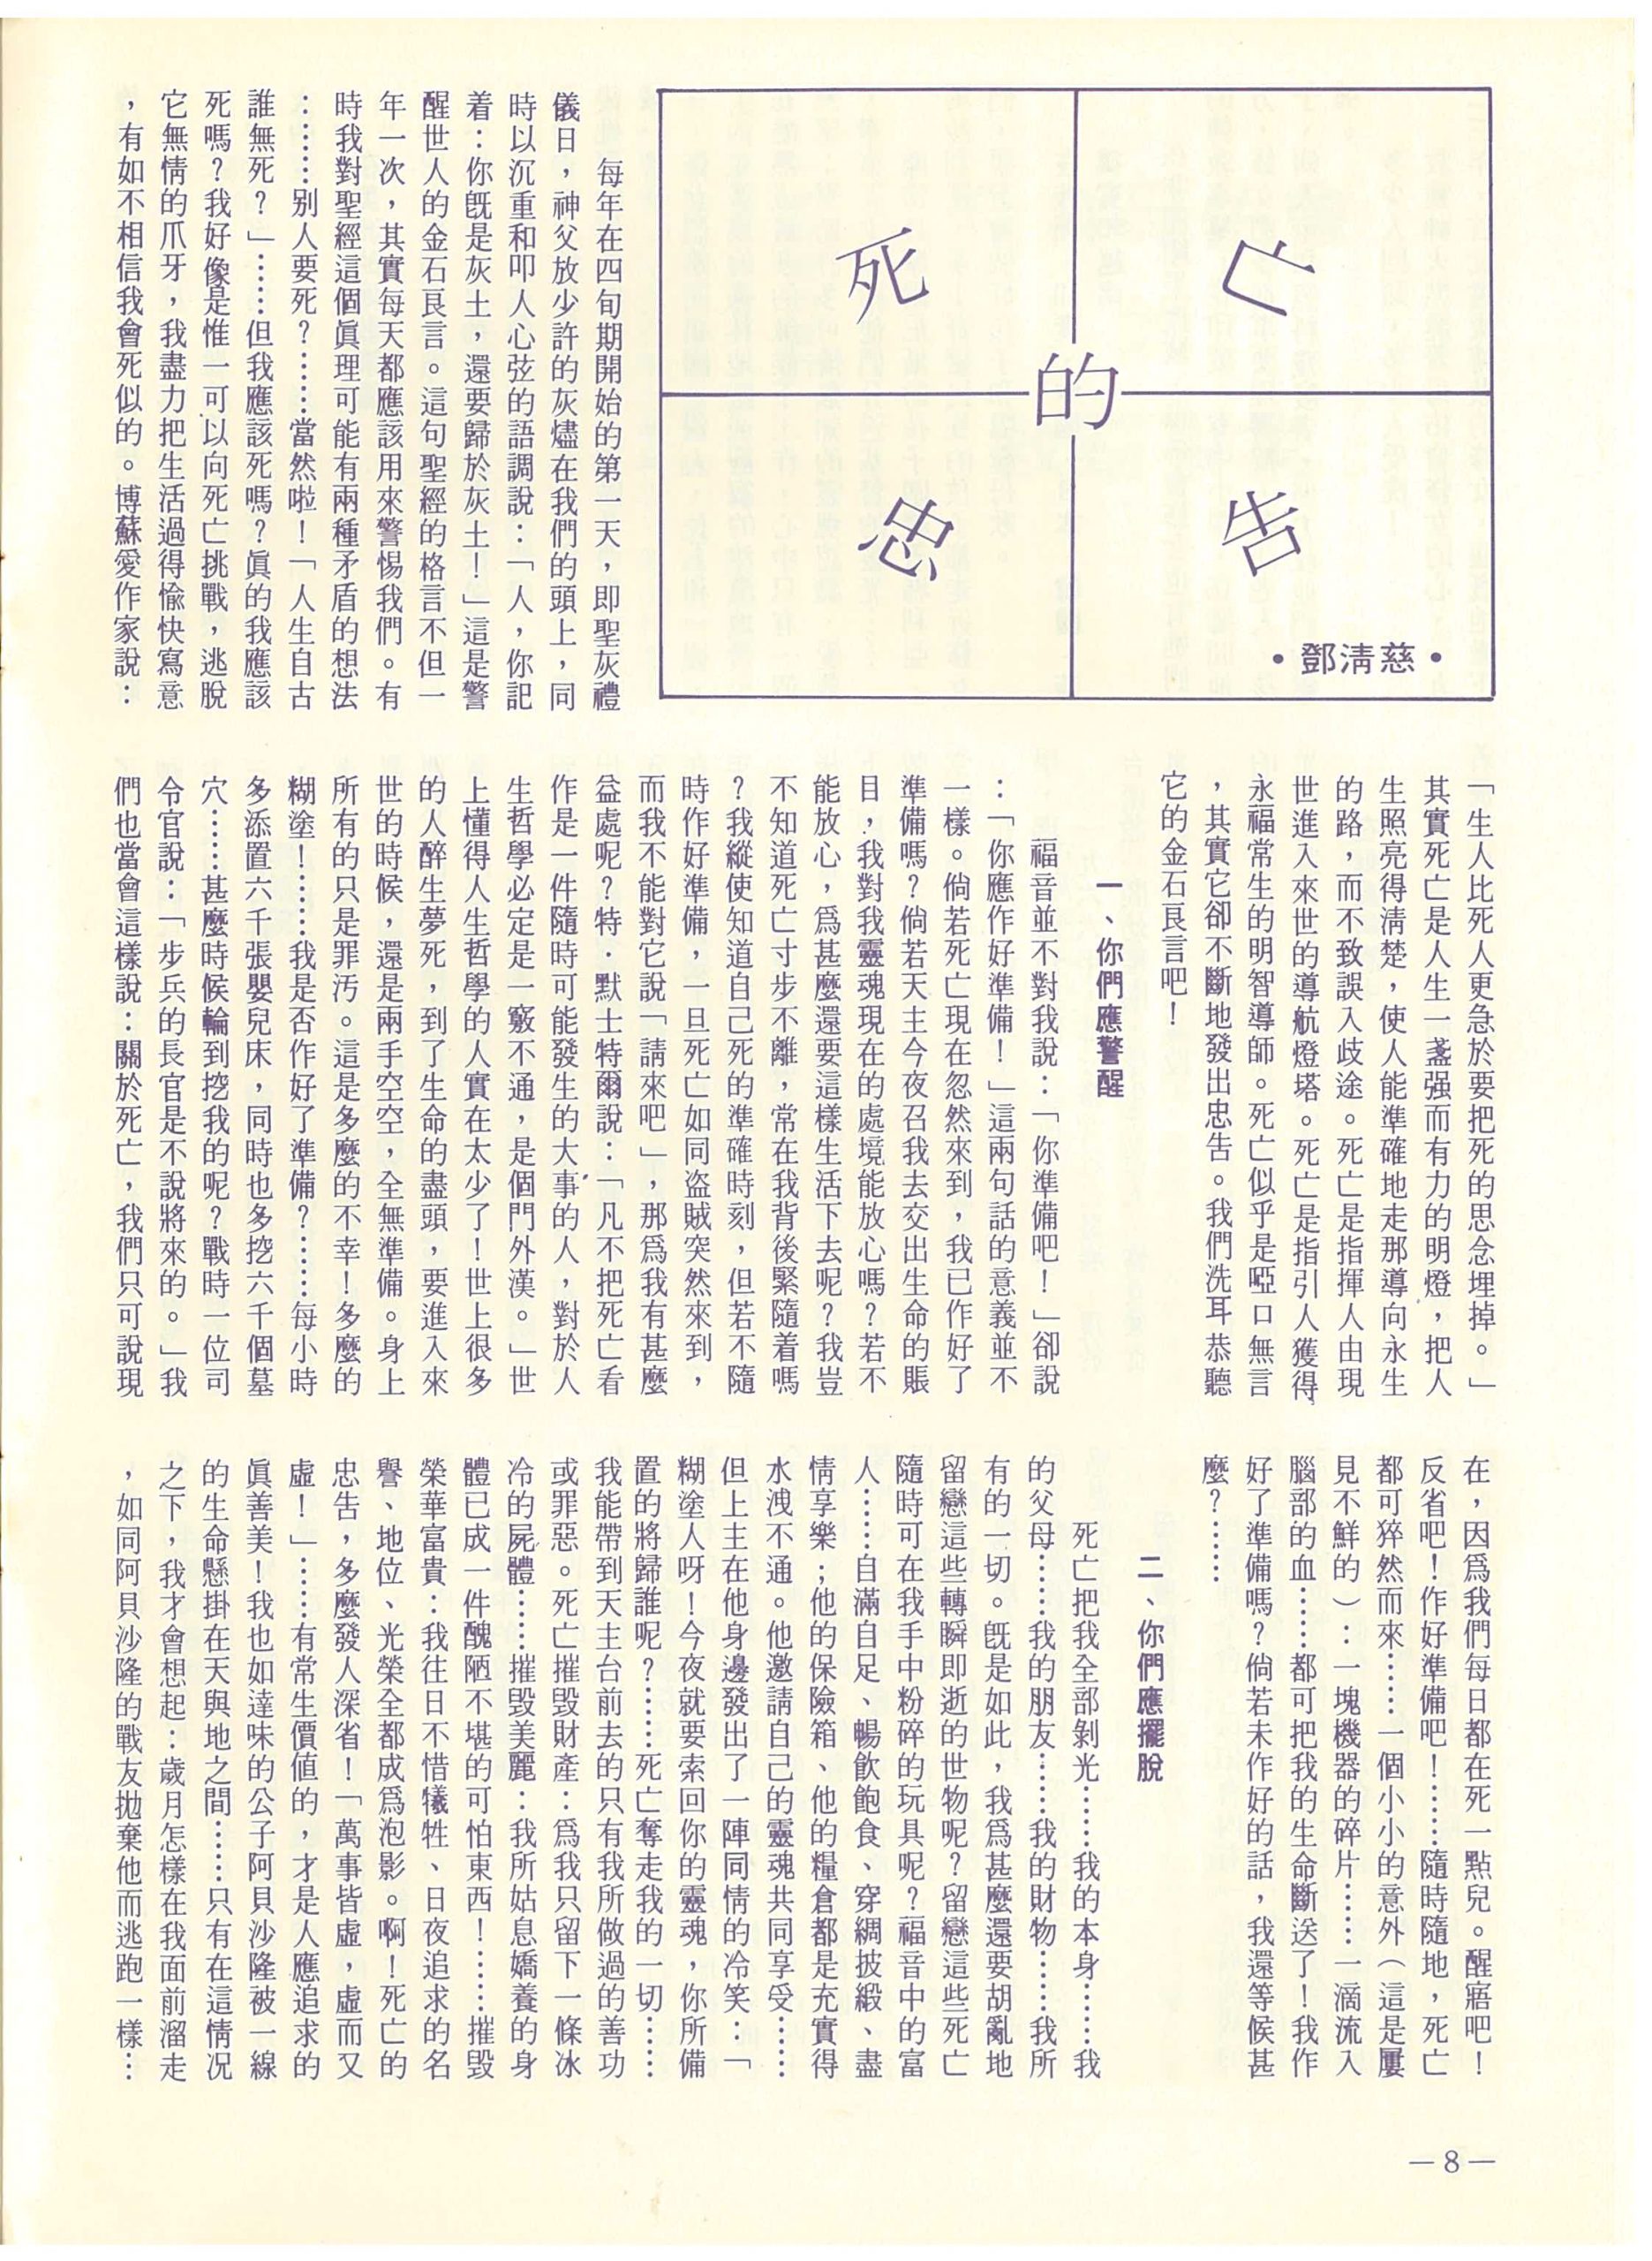 死亡的忠告
•鄧淸慈•
每年在四旬期開始的第一天，即聖灰禮
儀日，神父放少許的灰燼在我們的頭上，同
時以沉重和叩人心弦的語調說：「人，你記
着：你旣是灰土，還要歸於灰土！」這是警
醒世人的金石良言。這句聖經的格言不但一
年一次，其實每天都應該用來警惕我們。有
時我對聖經這個眞理可能有兩種矛盾的想法
：………別人要死？……當然啦！「人生自古
誰無死？」……但我應該死嗎？眞的我應該
死嗎？我好像是惟一可以向死亡挑戰，逃脫
它無情的爪牙，我盡力把生活過得愉快寫意
，有如不相信我會死似的。博蘇愛作家說：
「生人比死人更急於要把死的思念埋掉。」
其實死亡是人生一盞强而有力的明燈，把人
生照亮得淸楚，使人能準確地走那導向永生
的路，而不致誤入歧途。死亡是指揮人由現
世進入來世的導航燈塔。死亡是指引人獲得
永福常生的明智導師。死亡似乎是啞口無言
，其實它卻不斷地發出忠告。我們洗耳恭聽
它的金石良言吧！
一、你們應警醒
福音並不對我說：「你準備吧！」卻說
：「你應作好準備！」這兩句話的意義並不
一樣。倘若死亡現在忽然來到，我已作好了
準備嗎？倘若天主今夜召我去交出生命的賬
目，我對我靈魂現在的處境能放心嗎？若不
能放心，爲甚麼還要這樣生活下去呢？我豈
不知道死亡寸步不離，常在我背後緊隨着嗎
？我縱使知道自己死的準確時刻，但若不隨
時作好準備，一旦死亡如同盜賊突然來到，
而我不能對它說「請來吧」，那爲我有甚麼
益處呢？特．默士特爾說：「凡不把死亡看
作是一件隨時可能發生的大事的人，對於人
生哲學必定是一竅不通，是個門外漢。」世
上懂得人生哲學的人實在太少了！世上很多
的人醉生夢死，到了生命的盡頭，要進入來
世的時候，還是兩手空空，全無準備。身上
所有的只是罪汚。這是多麼的不幸！多麼的
糊塗！………我是否作好了準備？………每小時
多添置六千張嬰兒床，同時也多挖六千個墓
穴……甚麼時候輪到挖我的呢？戰時一位司
令官說：「步兵的長官是不說將來的。」我
們也當會這樣說：關於死亡，我們只可說現
在，因爲我們每日都在死一點兒。醒寤吧！
反省吧！作好準備吧！……隨時隨地，死亡
都可猝然而來……一個小小的意外（這是屢
見不鮮的）：一塊機器的碎片……一滴流入
腦部的血……都可把我的生命斷送了！我作
好了準備嗎？倘若未作好的話，我還等候甚
麼？……
二、你們應擺脫
死亡把我全部剝光……我的本身……我
的父母……我的朋友……我的財物……我所
有的一切。旣是如此，我爲甚麼還要胡亂地
留戀這些轉瞬即逝的世物呢？留戀這些死亡
隨時可在我手中粉碎的玩具呢？福音中的富
人……自滿自足、暢飮飽食、穿綢披緞、盡
情享樂；他的保險箱、他的糧倉都是充實得
水洩不通。他邀請自己的靈魂共同享受……
但上主在他身邊發出了一陣同情的冷笑：「
糊塗人呀！今夜就要索回你的靈魂，你所備
置的將歸誰呢？……死亡奪走我的一切……
我能帶到天主台前去的只有我所做過的善功
或罪惡。死亡摧毀財產：爲我只留下一條冰
冷的屍體……摧毀美麗：我所姑息嬌養的身
體已成一件醜陋不堪的可怕東西！……摧毀
榮華富貴：我往日不惜犧牲、日夜追求的名
譽、地位、光榮全都成爲泡影。啊！死亡的
忠告，多麼發人深省！「萬事皆虛，虛而又
虛！」……有常生價值的，才是人應追求的
眞善美！我也如達味的公子阿貝沙隆被一線
的生命懸掛在天與地之間……只有在這情況
之下，我才會想起：歲月怎樣在我面前溜走
，如同阿貝沙隆的戰友拋棄他而逃跑一樣…
—8—